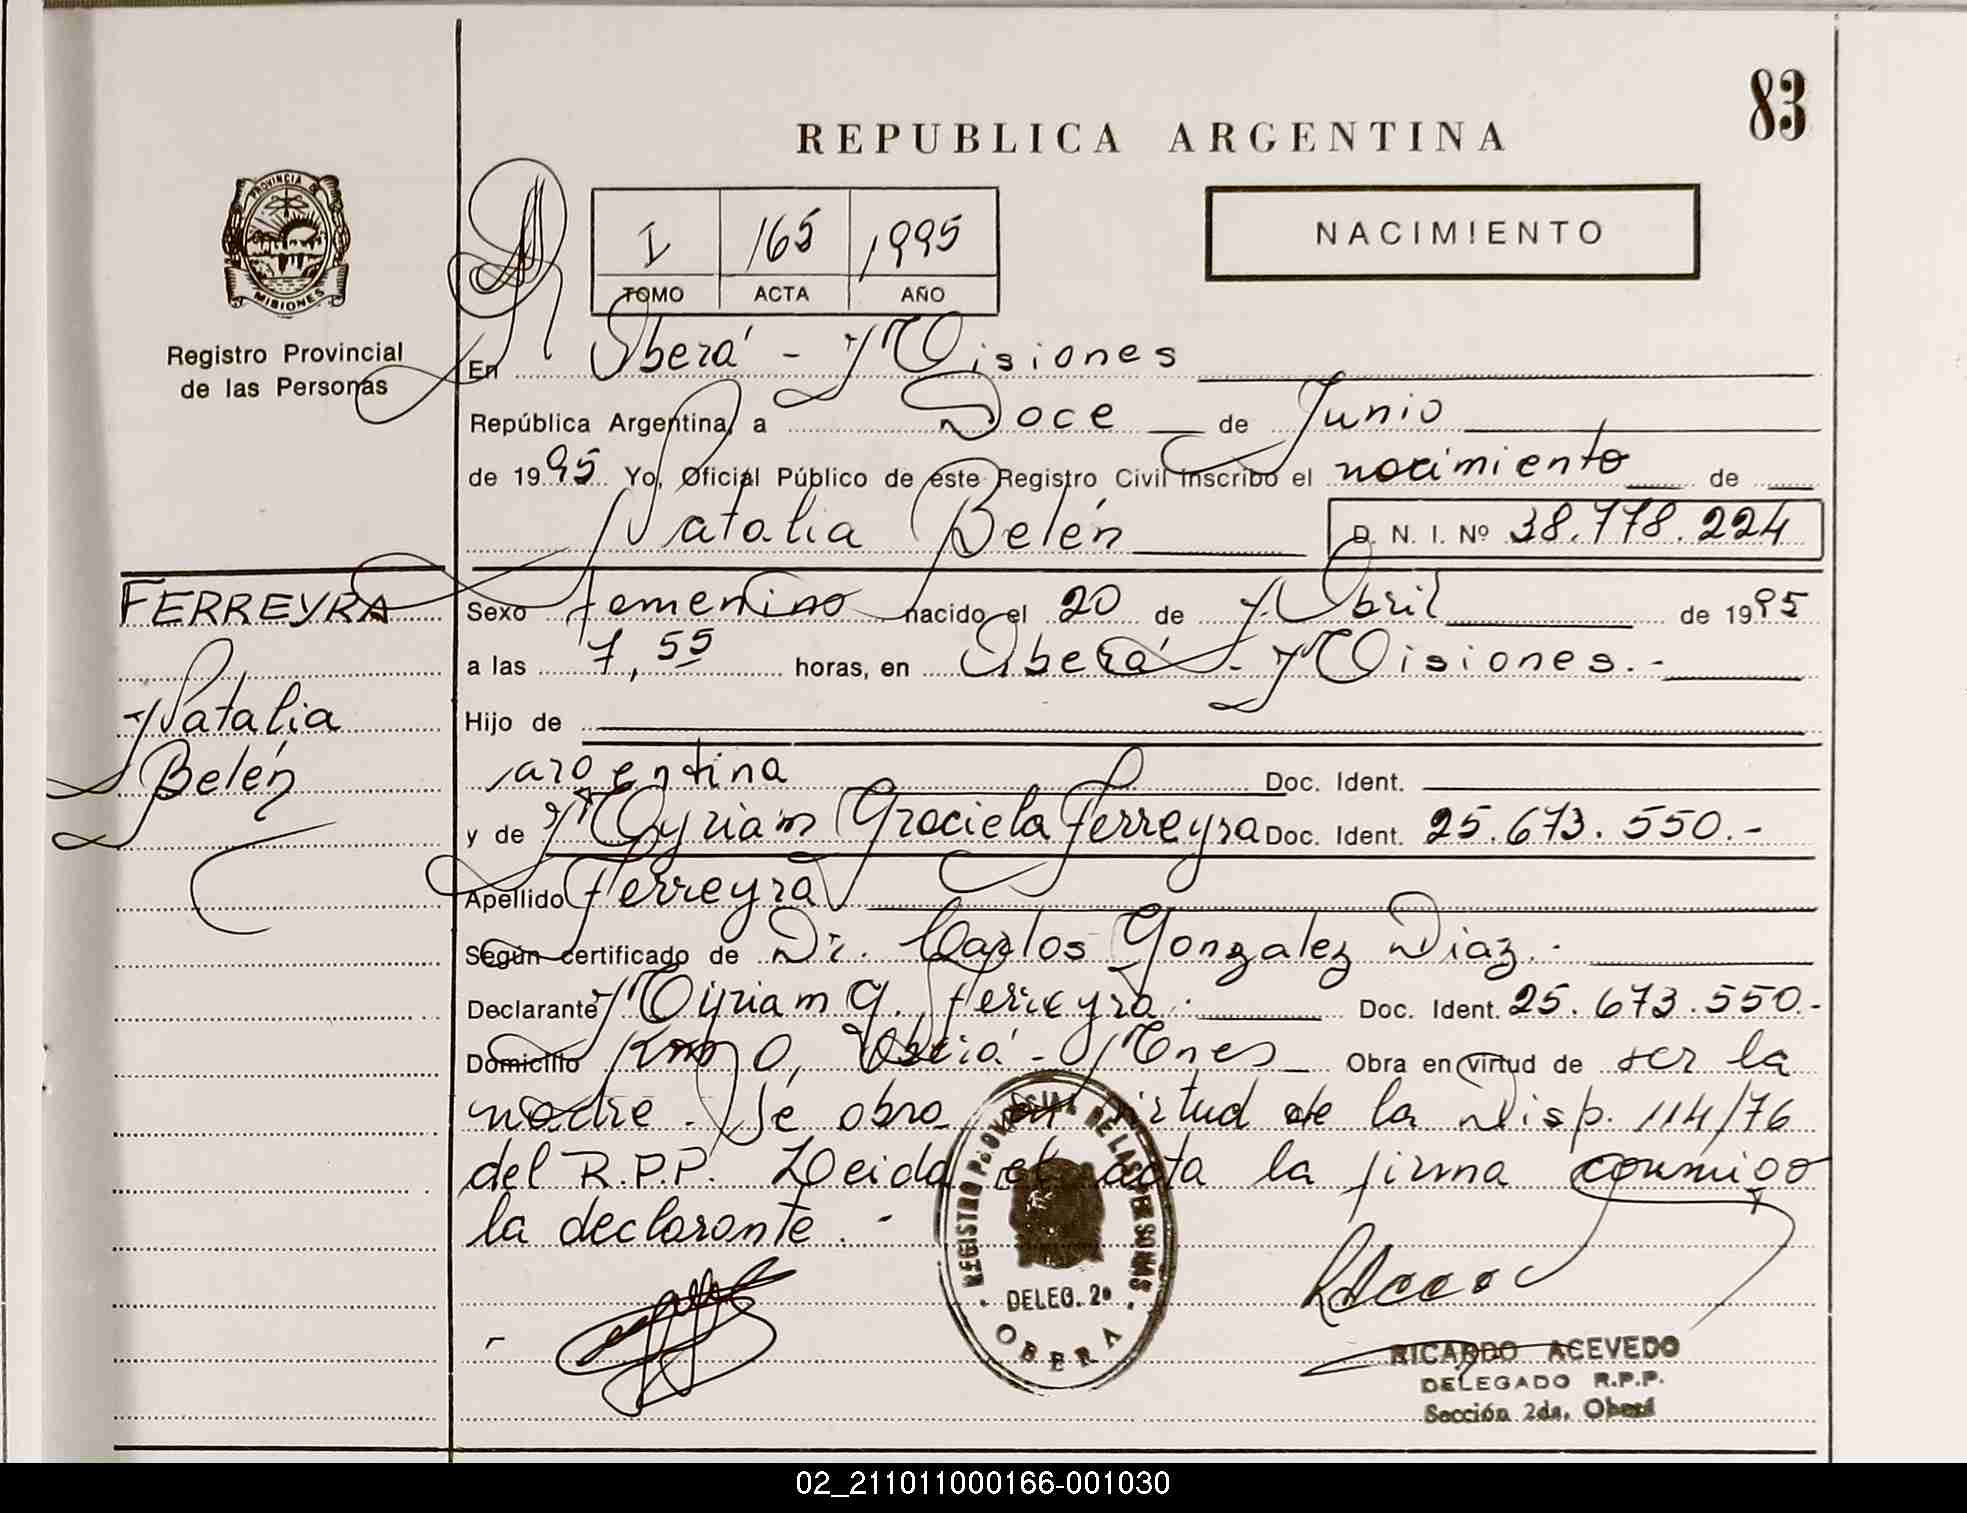 83
REPUBLICA ARGENTINA
PROVINCIA DE
MISIONES
Registro Provincial
de las Personas
I 165 1995
TOMO ACTA AÑO
NACIMIENTO
En Oberá - Misiones
República Argentina, a Doce de Junio
de 1995 Yo, Oficial Público de este Registro Civil inscribo el nacimiento de
Natalia Belén D. N. I. Nº 38.778.224
FERREYRA
Natalia
Belén
Sexo femenino nacido el 20 de Abril de 1995
a las 7,55 horas, en Oberá - Misiones.-
Hijo de
argentina Doc. Ident.
y de Myriam Graciela Ferreyra Doc. Ident. 25.673.550.-
Apellido Ferreyra
Según certificado de Dr. Carlos Gonzalez Diaz.
Declarante Myriam G. Ferreyra. Doc. Ident. 25.673.550.-
Domicilio Km 0, Oberá - Mnes Obra en virtud de ser la
madre. Se obra en virtud de la Disp. 114/76
del R.P.P. Leida el acta la firma conmigo
la declarante.-
REGISTRO PROVINCIAL DE LAS PERSONAS
DELEG. 2ª
OBERA
RICARDO ACEVEDO
DELEGADO R.P.P.
Sección 2da. Oberá
02_211011000166-001030